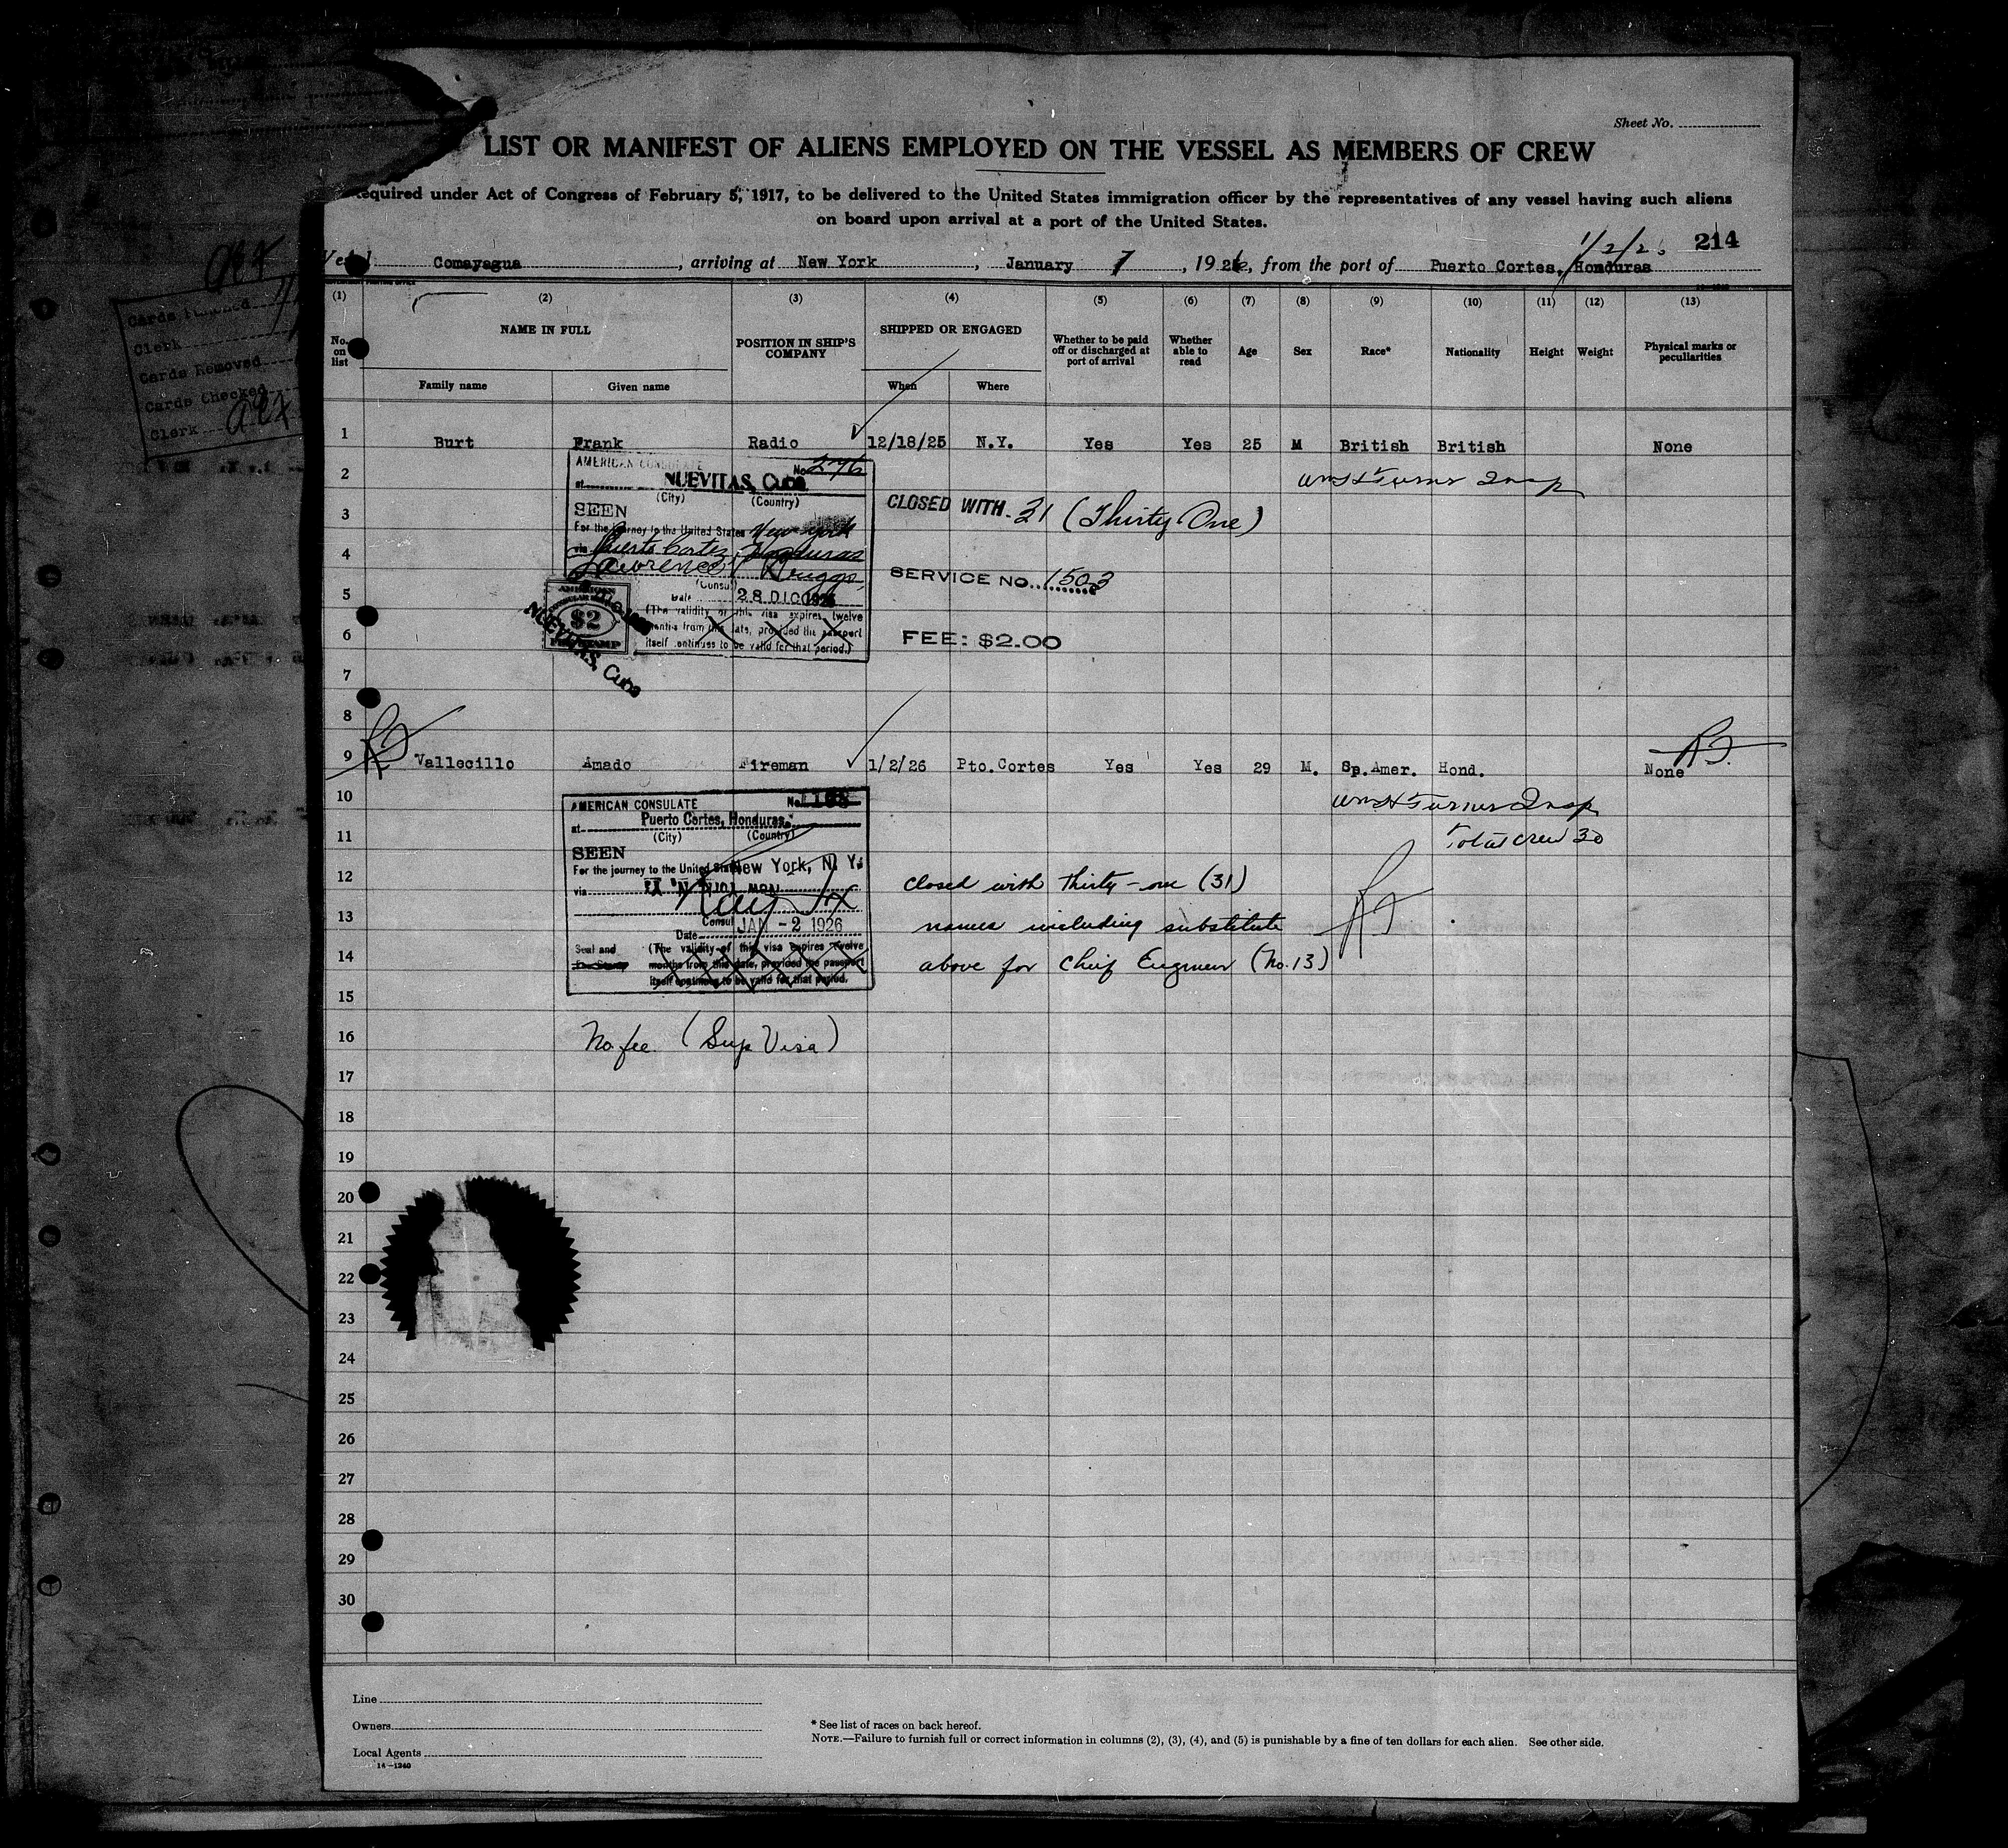 Sheet No.
LIST OR MANIFEST OF ALIENS EMPLOYED ON THE VESSEL AS MEMBERS OF CREW
equired under Act of Congress of February 5, 1917, to be delivered to the United States immigration officer by the representatives of any vessel having such aliens
on board upon arrival at a port of the United States.
214
Comayagua, arriving at New York, January 7, 1926, from the port of Puerto Cortes, Honduras
(1) (2) (3) (4) (5) (6) (7) (8) (9) (10) (11) (12) (13)
No. on list NAME IN FULL POSITION IN SHIP'S COMPANY SHIPPED OR ENGAGED Whether to be paid off or discharged at port of arrival Whether able to read Age Sex Race* Nationality Height Weight Physical marks or peculiarities
Family name Given name When Where
1 Burt Frank Radio 12/18/25 N.Y. Yes Yes 25 M British British None
AMERICAN CONSULATE No. 276
2 Wm H Turner Insp
at NUEVITAS, Cuba
(City) (Country)
SEEN
3 CLOSED WITH 31 (Thirty One)
For the journey to the United States New York
4 via Puerto Cortez, Honduras
Lawrence Briggs
(Consul
SERVICE NO. 1503
5 Date 28 DIC 1925
(The validity of this visa expires twelve
$2
6 months from this date, provided the passport
itself continues to be valid for that period.)
FEE: $2.00
NUEVITAS, Cuba
7
8
9 Vallecillo Amado Fireman 1/2/26 Pto. Cortes Yes Yes 29 M. Sp. Amer. Hond. None
10 Wm H Turner Insp
AMERICAN CONSULATE No. 1168
at Puerto Cortes, Honduras.
(City) (Country)
11 Total crew 30
SEEN
For the journey to the United States New York, N. Y.
12 closed with thirty-one (31)
via
13 names including substitute
Consul
Date JAN -2 1926
14 above for Chief Engineer (No. 13)
Seal and
Fee Stamp
(The validity of this visa expires twelve
months from this date, provided the passport
itself continues to be valid for that period.
15
16 No fee. (Sup Visa)
17
18
19
20
21
22
23
24
25
26
27
28
29
30
Line
Owners
Local Agents
14—1240
* See list of races on back hereof.
NOTE.—Failure to furnish full or correct information in columns (2), (3), (4), and (5) is punishable by a fine of ten dollars for each alien. See other side.
Clerk
Cards Removed
Cards Checked
Clerk